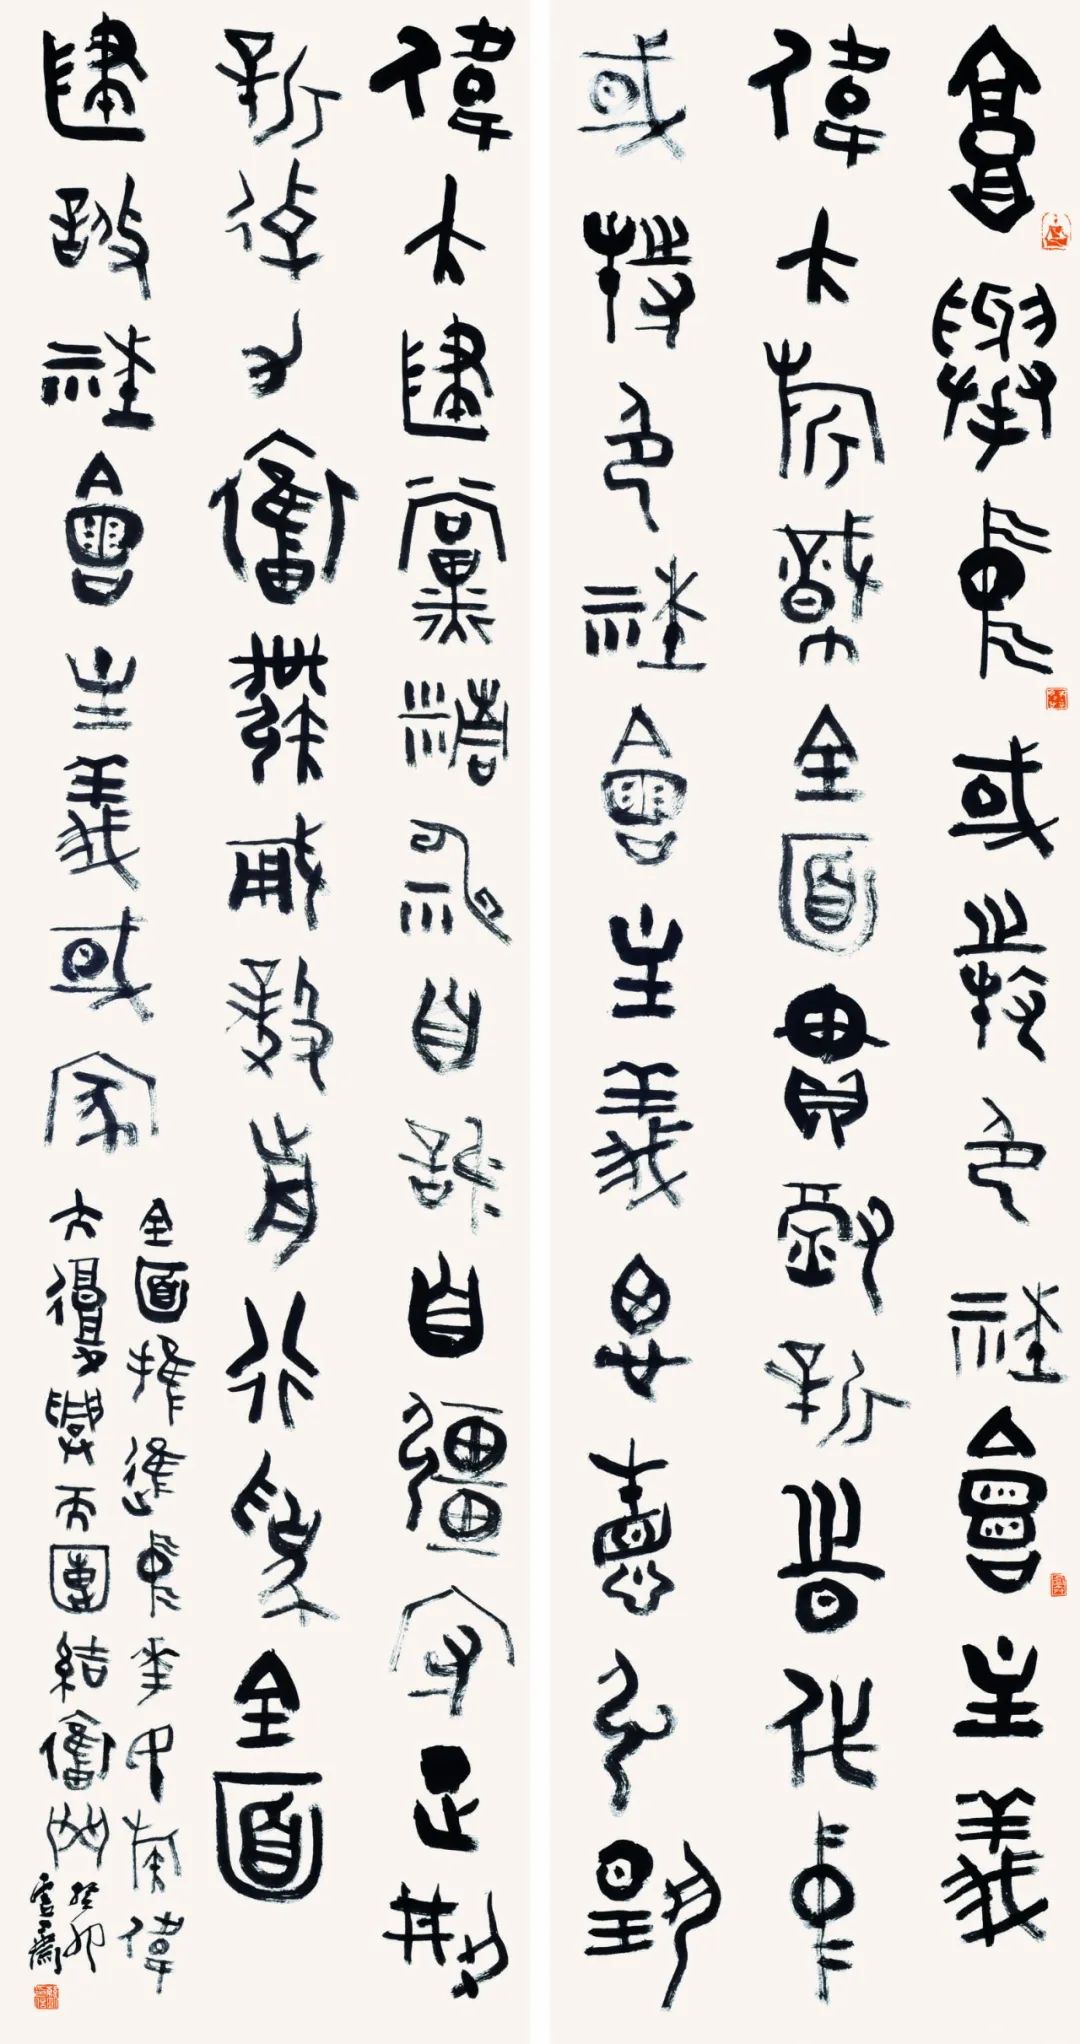 高舉中國特色社會主義
偉大旗幟全面貫徹新時代中
國特色社會主義思想弘揚
偉大建黨精神自信自強守正創
新踔厲奮發勇毅前行為全面
建設社會主義國家
全面推進中華民族偉
大復興而團結奮鬥
癸卯